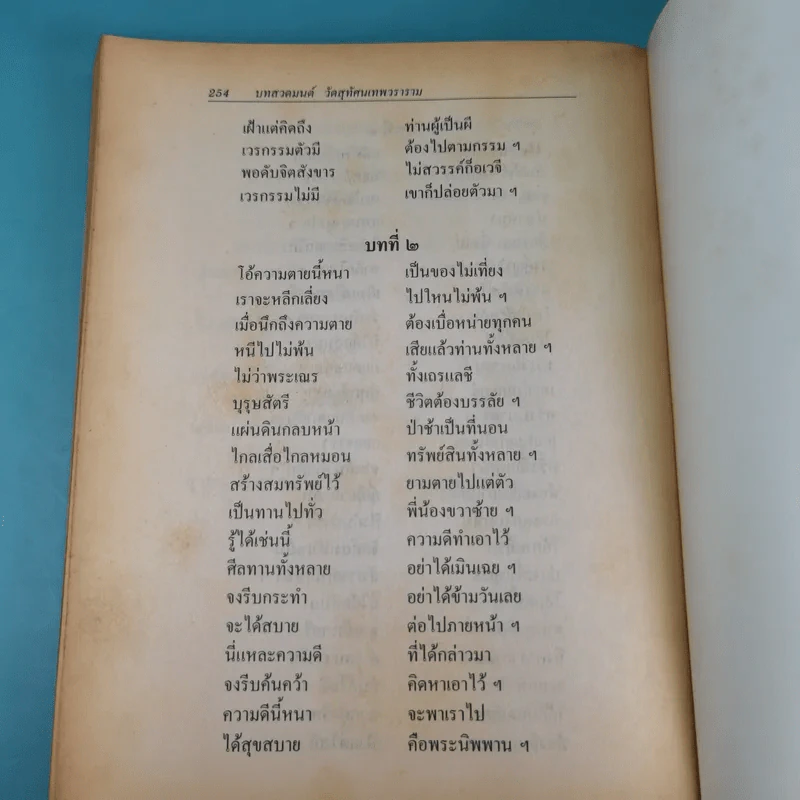 254 บทสวดมนต์ วัดสุทัศนเทพวราราม
เฝ้าแต่คิดถึง ท่านผู้เป็นผี
เวรกรรมตัวมี ต้องไปตามกรรม ฯ
พอดับจิตสังขาร ไม่สวรรค์ก็อเวจี
เวรกรรมไม่มี เขาก็ปล่อยตัวมา ฯ
บทที่ ๒
โอ้ความตายนี้หนา เป็นของไม่เที่ยง
เราจะหลีกเลี่ยง ไปไหนไม่พ้น ฯ
เมื่อนึกถึงความตาย ต้องเบื่อหน่ายทุกคน
หนีไปไม่พ้น เสียแล้วท่านทั้งหลาย ฯ
ไม่ว่าพระเณร ทั้งเถรแลชี
บุรุษสัตรี ชีวิตต้องบรรลัย ฯ
แผ่นดินกลบหน้า ป่าช้าเป็นที่นอน
ไกลเสื่อไกลหมอน ทรัพย์สินทั้งหลาย ฯ
สร้างสมทรัพย์ไว้ ยามตายไปแต่ตัว
เป็นทานไปทั่ว พี่น้องขวาซ้าย ฯ
รู้ได้เช่นนี้ ความดีทำเอาไว้
ศีลทานทั้งหลาย อย่าได้เมินเฉย ฯ
จงรีบกระทำ อย่าได้ข้ามวันเลย
จะได้สบาย ต่อไปภายหน้า ฯ
นี่แหละความดี ที่ได้กล่าวมา
จงรีบค้นคว้า คิดหาเอาไว้ ฯ
ความดีนี้หนา จะพาเราไป
ได้สุขสบาย คือพระนิพพาน ฯ